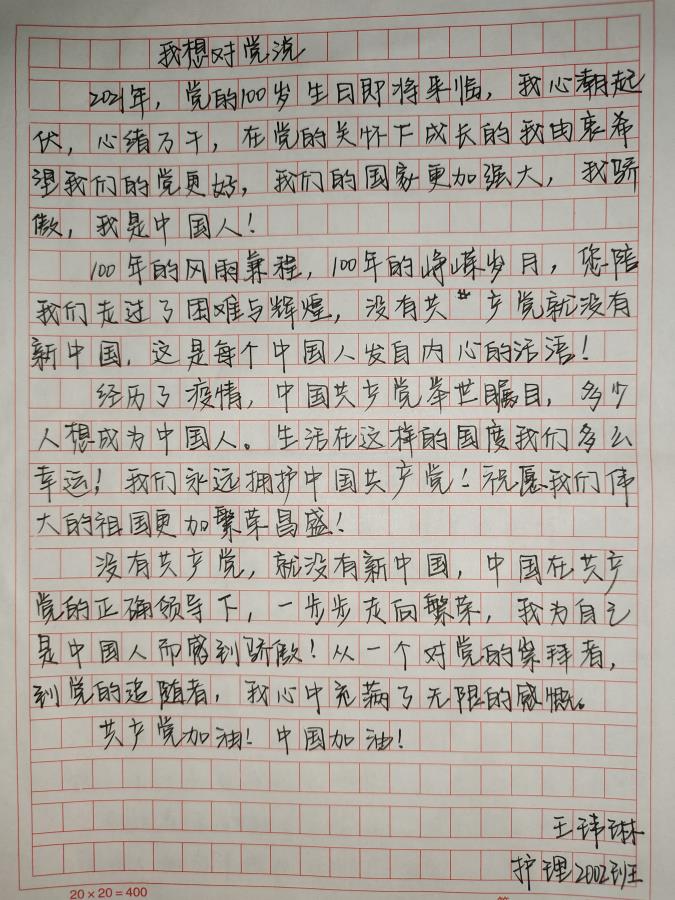 我想对党说
2021年，党的100岁生日即将来临，我心潮起
伏，心绪万千，在党的关怀下成长的我由衷希
望我们的党更好，我们的国家更加强大，我骄
傲，我是中国人！
100年的风雨兼程，100年的峥嵘岁月，您陪
我们走过了困难与辉煌，没有共产党就没有
新中国，这是每个中国人发自内心的话语！
经历了疫情，中国共产党举世瞩目，多少
人想成为中国人。生活在这样的国度我们多么
幸运！我们永远拥护中国共产党！祝愿我们伟
大的祖国更加繁荣昌盛！
没有共产党，就没有新中国，中国在共产
党的正确领导下，一步步走向繁荣，我为自己
是中国人而感到骄傲！从一个对党的崇拜者，
到党的追随者，我心中充满了无限的感慨。
共产党加油！中国加油！
王玮琳
护理2002班
20×20=400